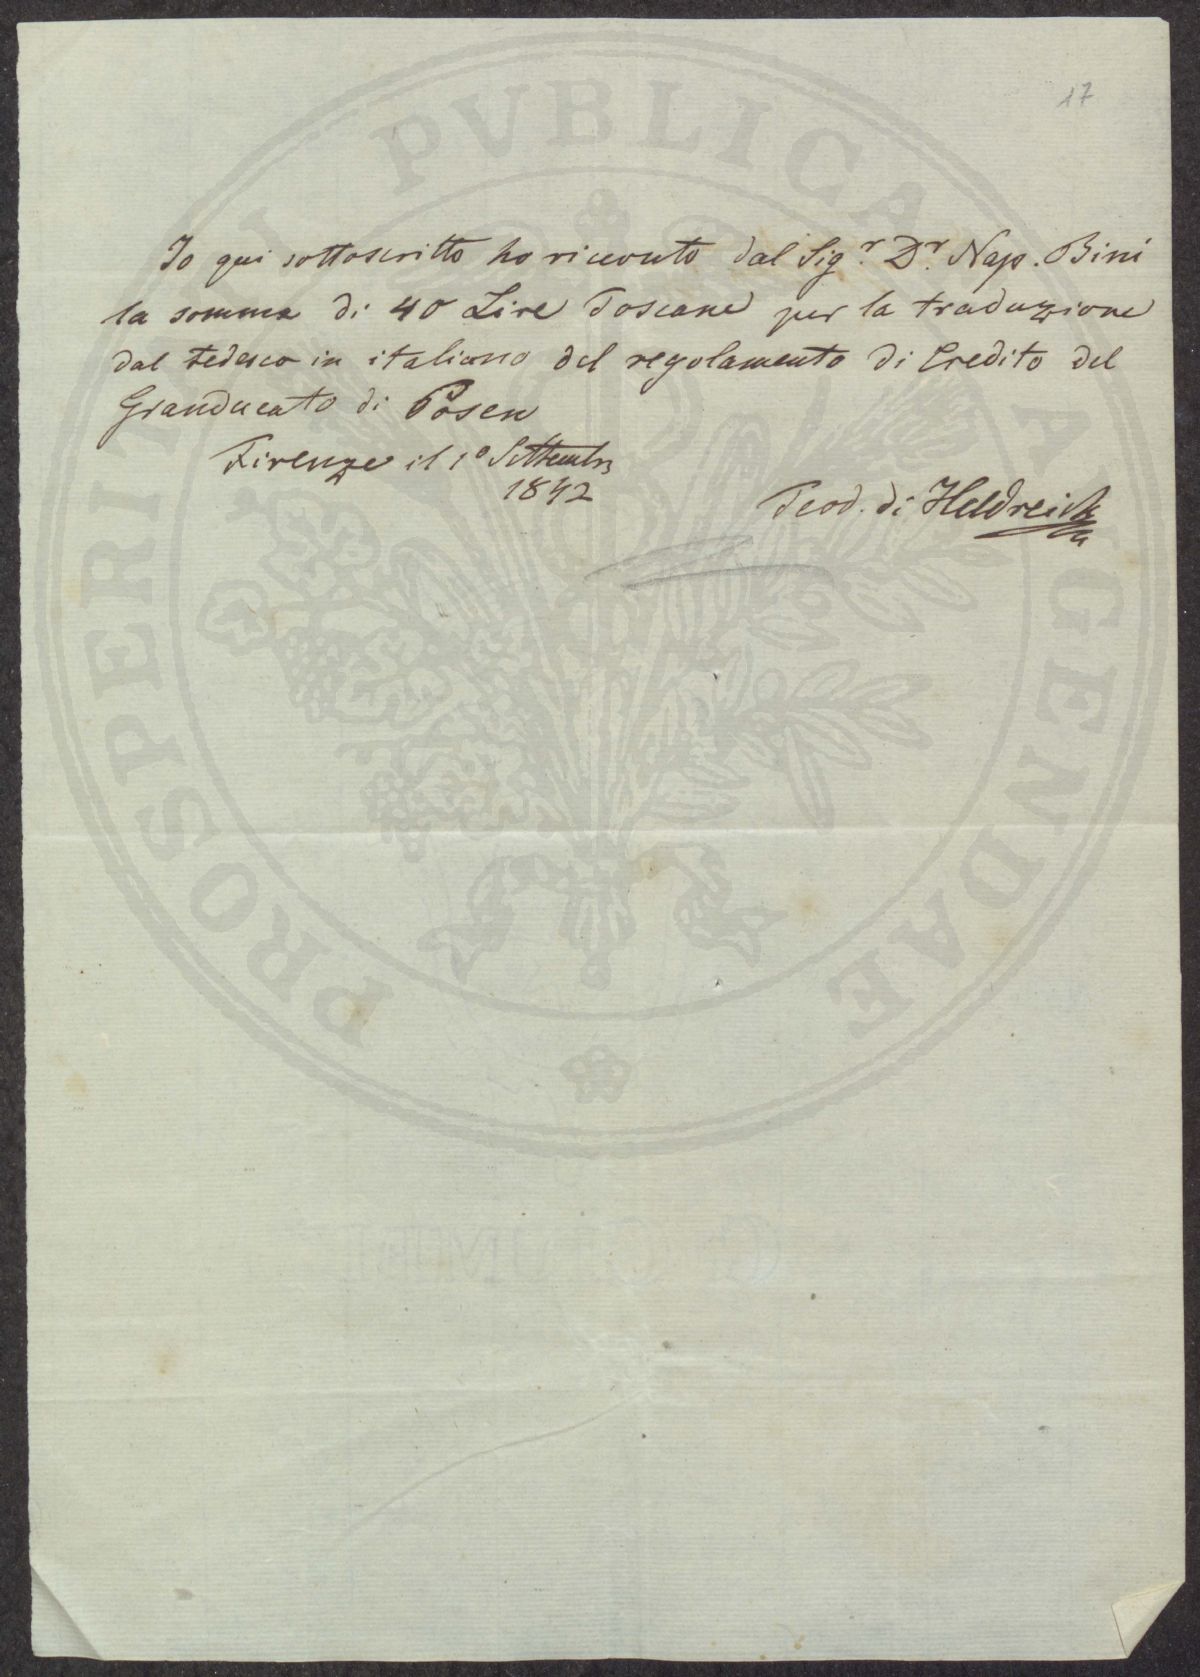 17
Io qui sottoscritto ho ricevuto dal Sig.r D.r Nap. Bini
la somma di 40 Lire Toscane per la traduzione
dal tedesco in italiano del regolamento di Credito del
Granducato di Posen
Firenze il 1º Settembre
1842
Teod. di Heldreich
PROSPERITATI PVBLICAE AVGENDAE